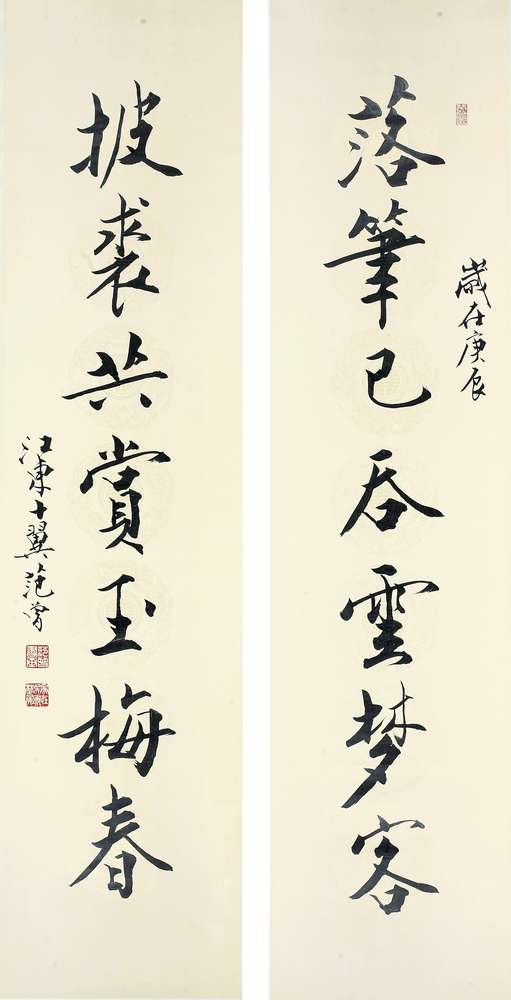 歲在庚辰
落筆已吞雲梦客
披裘共賞玉梅春
江東十翼范曾